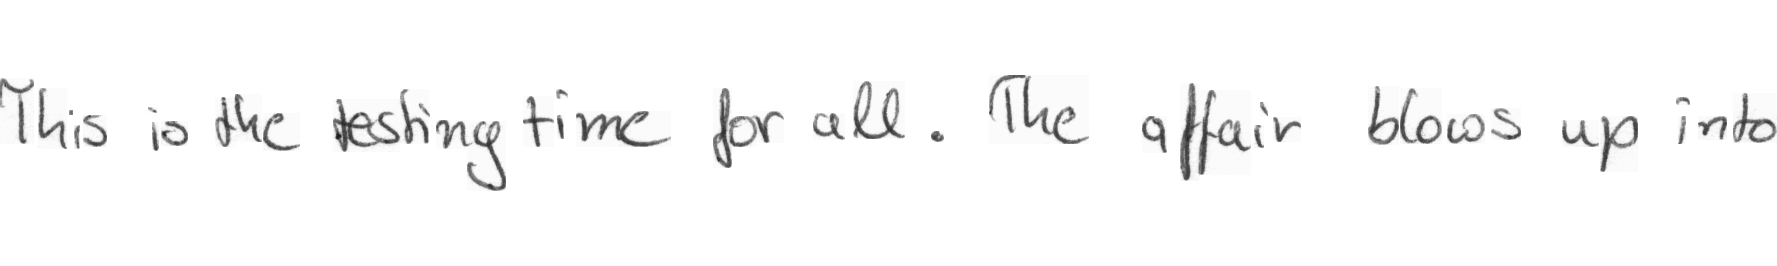 This is the testing time for all. The affair blows up into